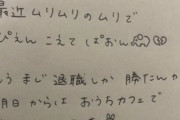 最近ムリムリのムリで
ぴえん こえて ぱおん
まじ 退職しか 勝たんか
明日 からは おうちカフェで